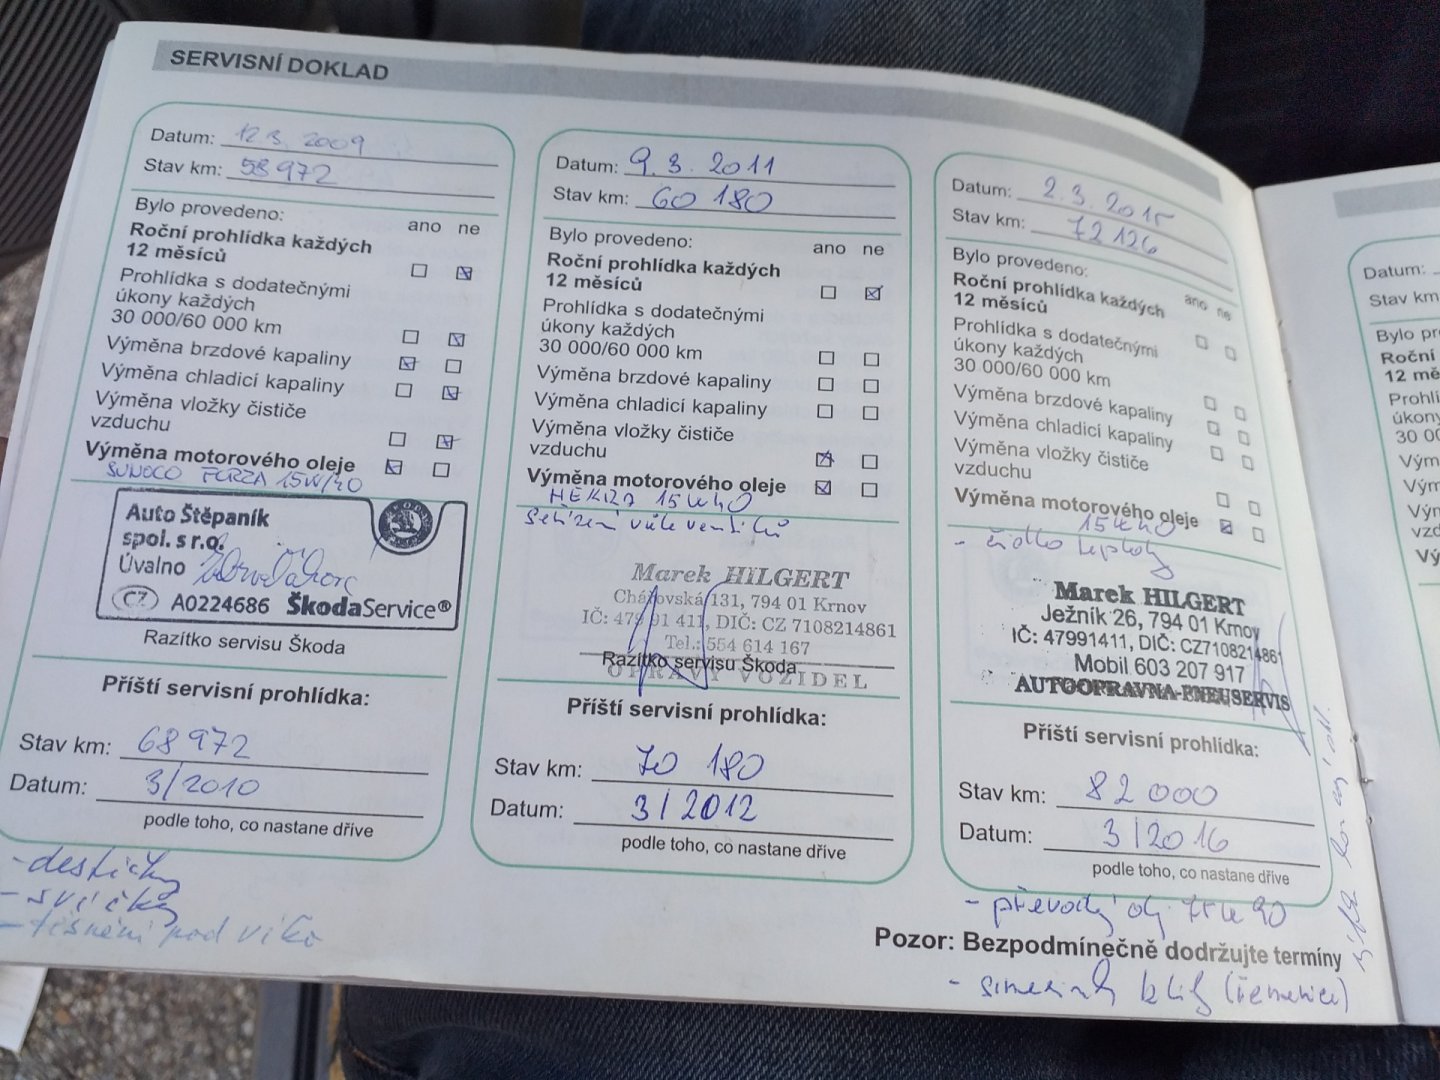 SERVISNÍ DOKLAD
Datum: 12 3. 2009
Stav km: 58 972
Bylo provedeno:
ano ne
Roční prohlídka každých
12 měsíců
Prohlídka s dodatečnými
úkony každých
30 000/60 000 km
Výměna brzdové kapaliny
Výměna chladicí kapaliny
Výměna vložky čističe
vzduchu
Výměna motorového oleje
SUNOCO FORZA 15W/40
Auto Štěpaník
spol. s r.o.
Úvalno
CZ A0224686 ŠkodaService®
Razítko servisu Škoda
Příští servisní prohlídka:
Stav km: 68 972
Datum: 3/2010
podle toho, co nastane dříve
- destičky
- svíčky
- těsnění pod víko
Datum: 9. 3. 2011
Stav km: 60 180
Bylo provedeno:
ano ne
Roční prohlídka každých
12 měsíců
Prohlídka s dodatečnými
úkony každých
30 000/60 000 km
Výměna brzdové kapaliny
Výměna chladicí kapaliny
Výměna vložky čističe
vzduchu
Výměna motorového oleje
15W40
Seřízení vůle ventilů
Marek HILGERT
Chářovská 131, 794 01 Krnov
IČ: 479 91 411, DIČ: CZ 7108214861
Tel.: 554 614 167
Razítko servisu Škoda
OPRAVY VOZIDEL
Příští servisní prohlídka:
Stav km: 70 180
Datum: 3/2012
podle toho, co nastane dříve
Datum: 2. 3. 2015
Stav km: 72 126
Bylo provedeno:
ano ne
Roční prohlídka každých
12 měsíců
Prohlídka s dodatečnými
úkony každých
30 000/60 000 km
Výměna brzdové kapaliny
Výměna chladicí kapaliny
Výměna vložky čističe
vzduchu
Výměna motorového oleje
15W40
- čidlo teploty
Marek HILGERT
Ježník 26, 794 01 Krnov
IČ: 47991411, DIČ: CZ7108214861
Mobil 603 207 917
AUTOOPRAVNA-PNEUSERVIS
Příští servisní prohlídka:
Stav km: 82 000
Datum: 3/2016
podle toho, co nastane dříve
- převodový olej 75W90
Pozor: Bezpodmínečně dodržujte termíny
(řemenice)
Datum:
Stav km
Bylo pro
Roční
12 měs
Prohlí
úkony
30 00
Vým
Vým
Výn
vzd
Vý